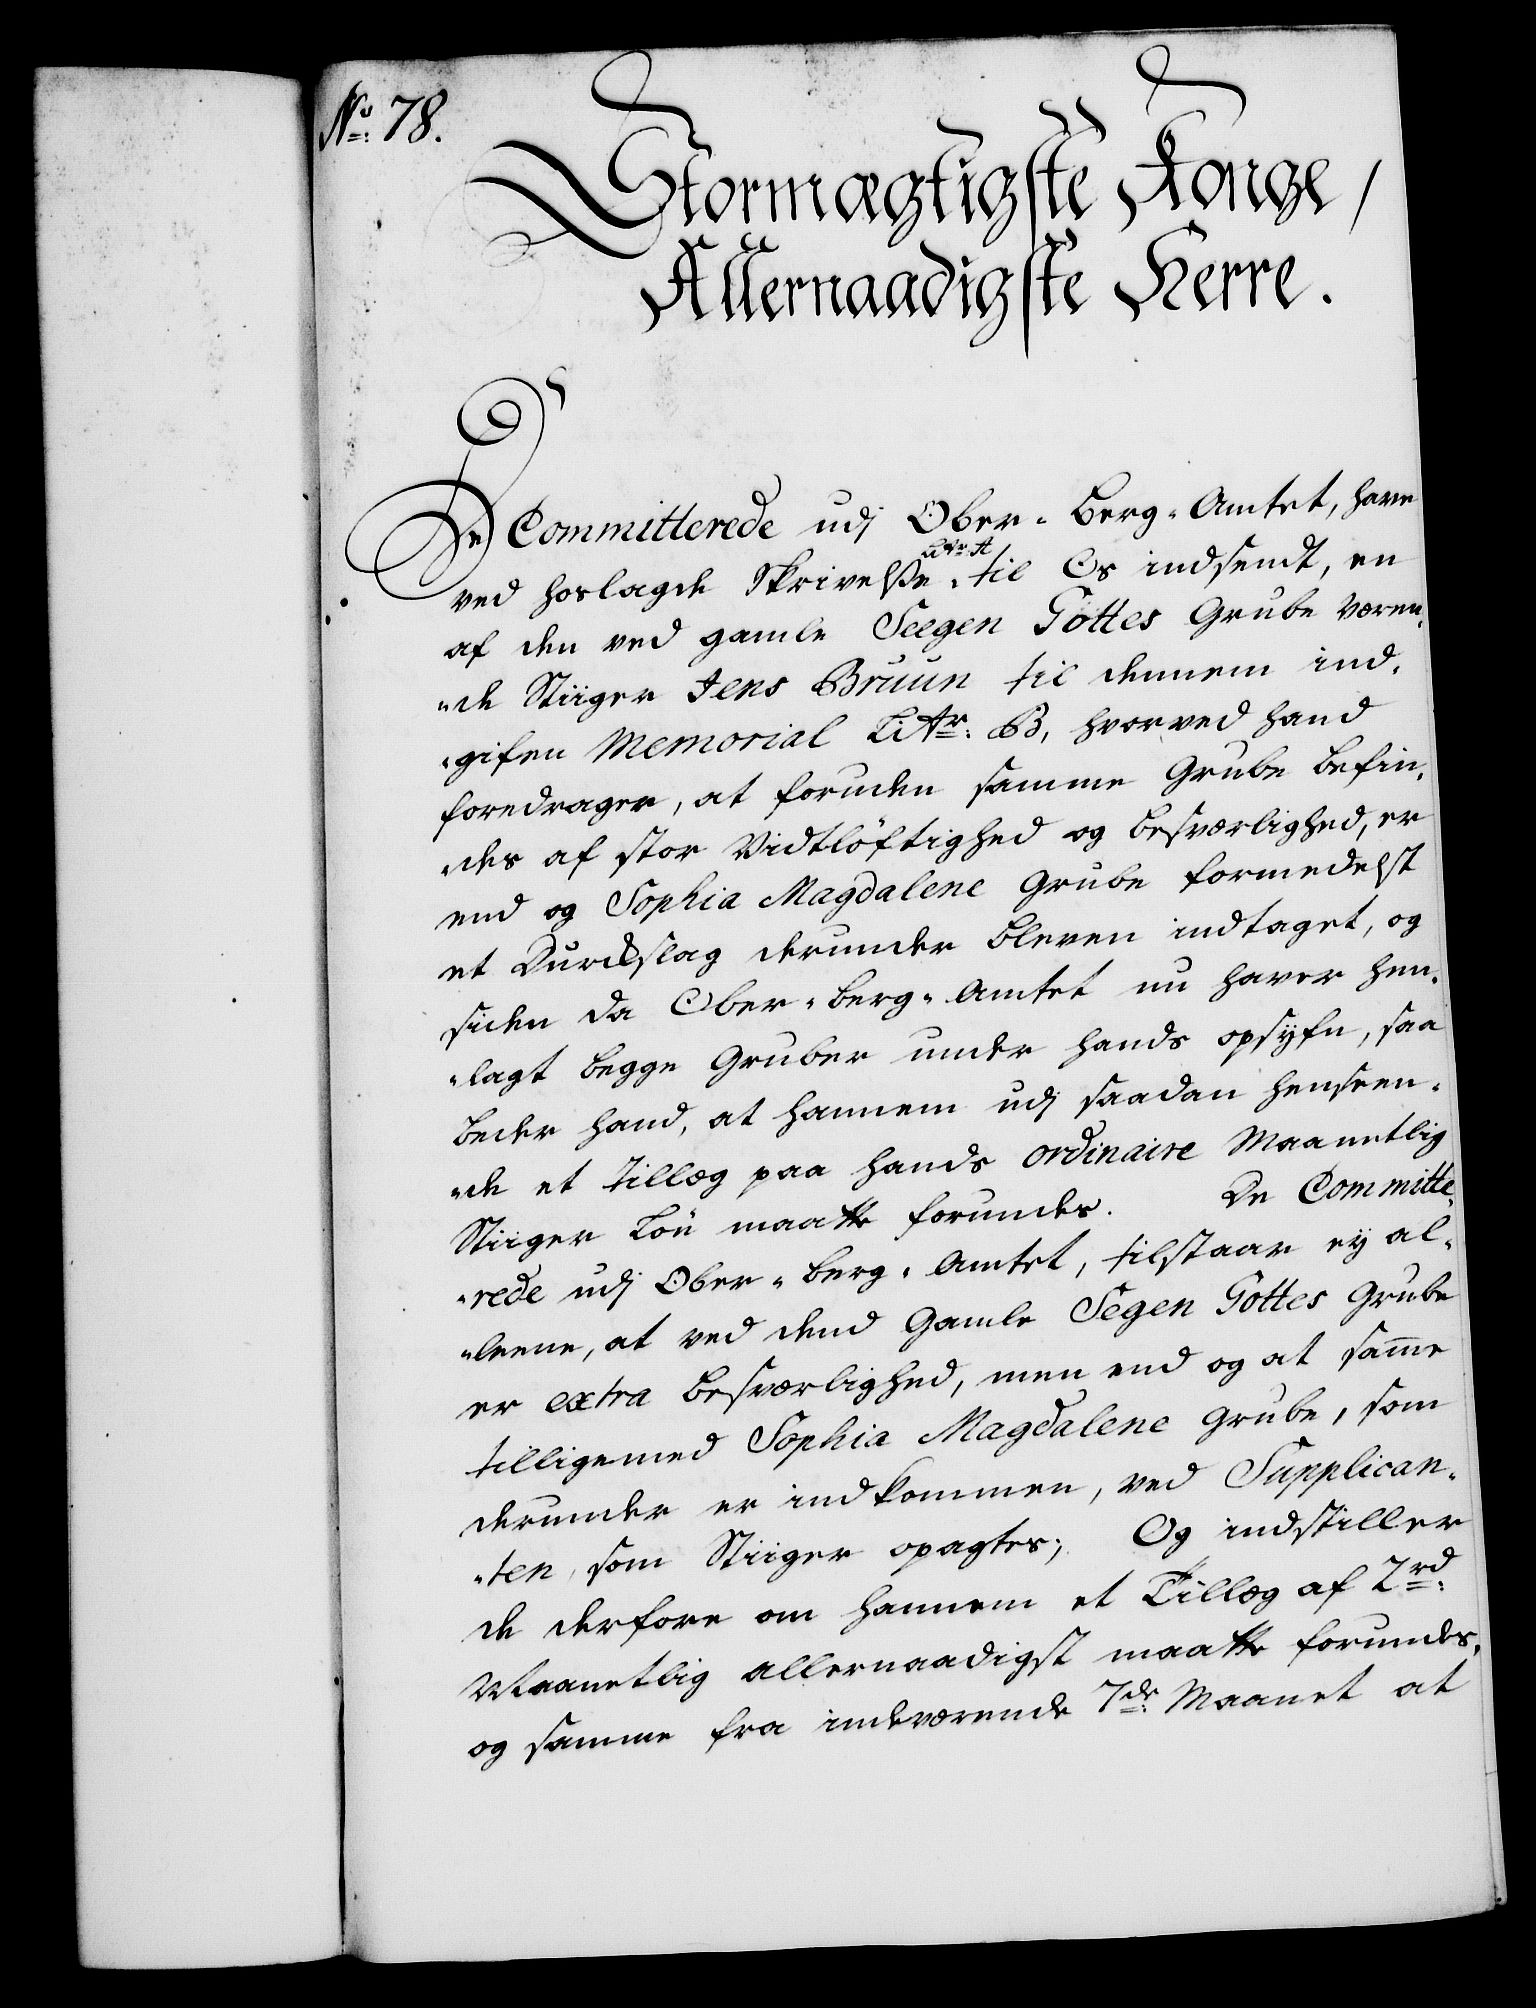 No: 78.
Stormægtigste Konge,
Allernaadigste Herre.
De Committerede udj Ober-Berg-Amtet, have
Litr: A
ved hoslagde Skrivelse til Os indsendt, en
af den ved gamle Seegen Gottes Grube væren-
-de Stiiger Jens Bruun til dennem ind-
-gifen Memorial Litr: B, hvorved hand
foredrager, at foruden samme Grube befin-
-des af stor Vidtløftighed og besværlighed, er
end og Sophia Magdalene Grube formedelst
et Durchslag derunder bleven indtaget, og
siden da Ober-Berg-Amtet nu haver hen-
-lagt begge Gruber under hands opsyfn, saa
beder hand, at hannem udj saadan henseen-
-de et tillæg paa hands ordinaire Maanetlig
Stiiger Løn maatte forundes. De Committe-
-rede udj Ober-Berg-Amtet, tilstaar ey al-
-leene, at ved dend Gamle Segen Gottes Grube
er extra besværlighed, men end og at samme
tilligemed Sophia Magdalene Grube, som
derunder er indkommen, ved Supplican-
-ten, som Stiiger opagtes; Og indstiller
de derfore om hannem et Tillæg af 2rd:
Maanetlig allernaadigst maatte forundes,
og samme fra indeværende 7de: Maanet at